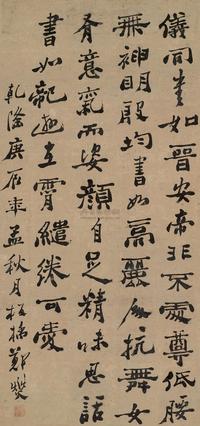 儀同書如晉安帝非不處尊低腰
無神明殷均書如高麗人抗舞女
有意氣而姿顏自足精味思話
書如遊在霄繾綣可愛
乾隆庚辰年孟秋月板橋鄭燮